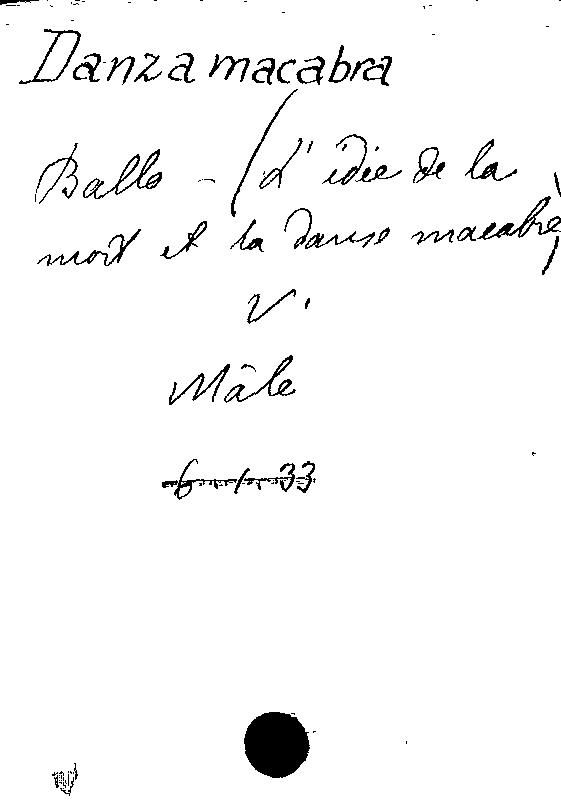 Danza macabra
Ballo - (L'idie de la
mort et la danse macabre)
V.
Mâle
6.1.33